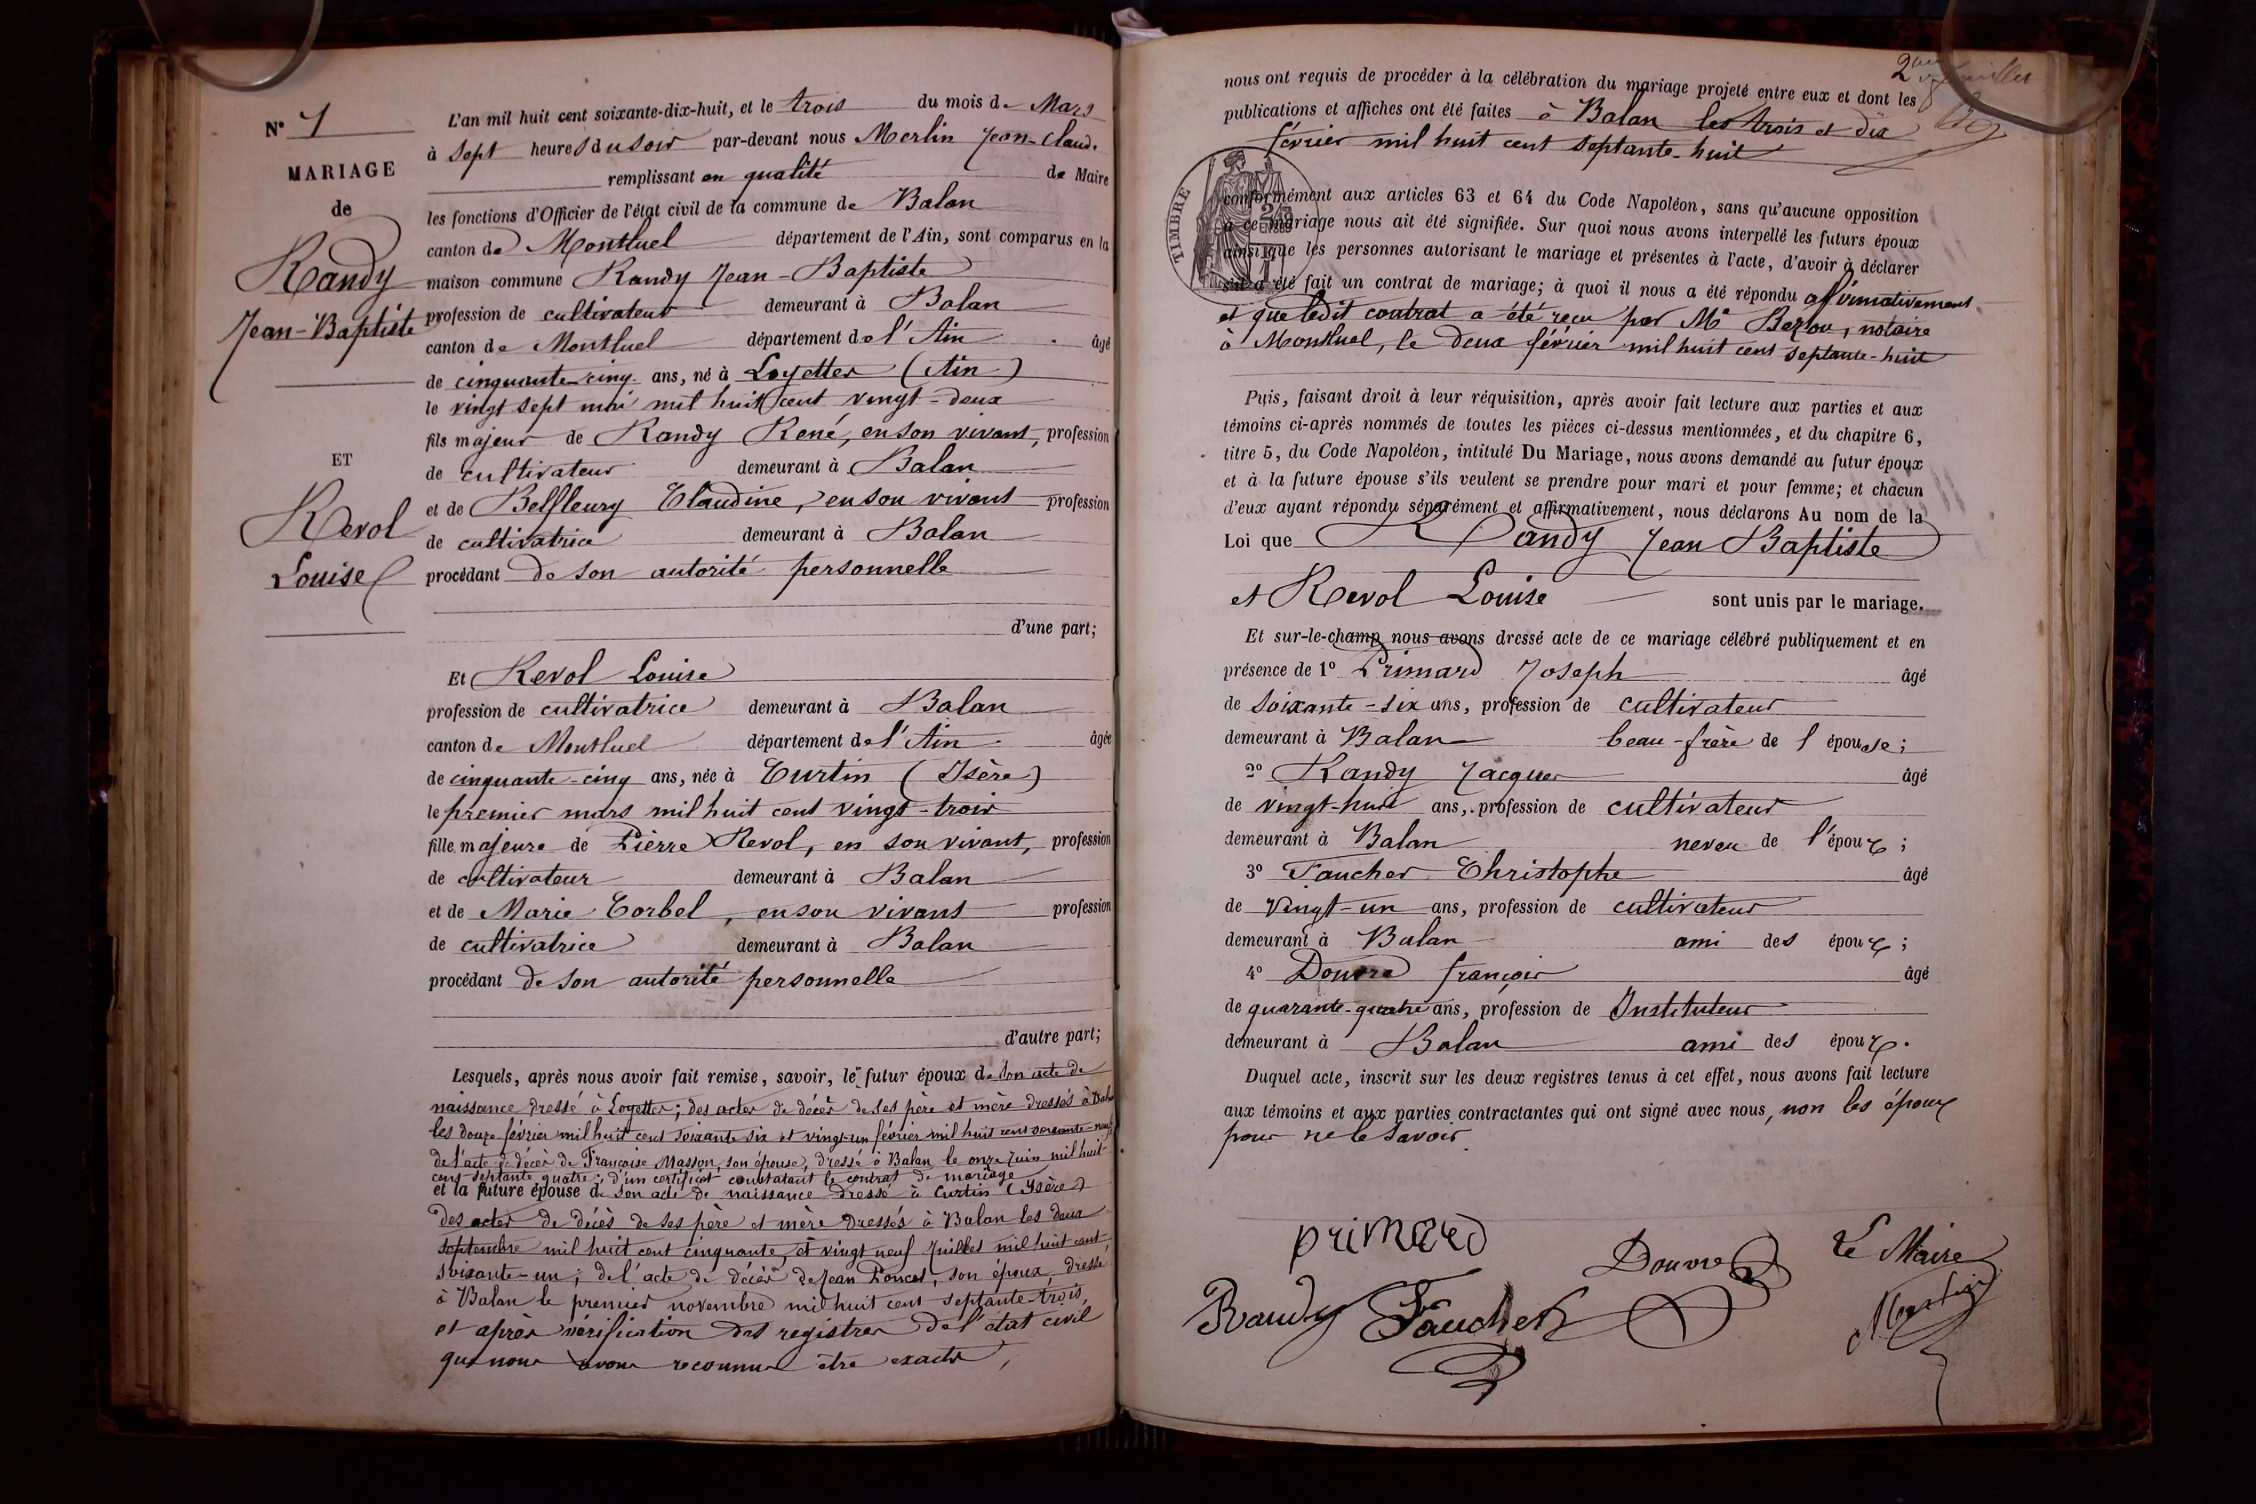 N° 1
MARIAGE
de
Randy
Jean-Baptiste
ET
Revol
Louise
L'an mil huit cent soixante-dix-huit, et le trois du mois de Mars
à sept heures du soir par-devant nous Merlin Jean-Claude
remplissant en qualité de Maire
les fonctions d'Officier de l'état civil de la commune de Balan
canton de Montluel département de l'Ain, sont comparus en la
maison commune Randy Jean-Baptiste
profession de cultivateur demeurant à Balan
canton de Montluel département de l'Ain âgé
de cinquante-cinq ans, né à Loyettes (Ain)
le vingt sept mai mil huit cent vingt-deux
fils majeur de Randy René, en son vivant, profession
de cultivateur demeurant à Balan
et de Belfleury Claudine, en son vivant profession
de cultivatrice demeurant à Balan
procédant de son autorité personnelle
d'une part;
Et Revol Louise
profession de cultivatrice demeurant à Balan
canton de Montluel département de l'Ain âgée
de cinquante-cinq ans, née à Curtin (Isère)
le premier mars mil huit cent vingt-trois
fille majeure de Pierre Revol, en son vivant, profession
de cultivateur demeurant à Balan
et de Marie Corbel, en son vivant profession
de cultivatrice demeurant à Balan
procédant de son autorité personnelle
d'autre part;
Lesquels, après nous avoir fait remise, savoir, le futur époux de son acte de
naissance dressé à Loyettes; des actes de décès de ses père et mère dressés à Balan
les douze février mil huit cent soixante six et vingt-un février mil huit cent soixante-neuf
de l'acte de décès de Françoise Masson, son épouse, dressé à Balan le onze Juin mil huit
cent septante quatre; d'un certificat constatant le contrat de mariage
et la future épouse de son acte de naissance dressé à Curtin (Isère)
des actes de décès de ses père et mère dressés à Balan les deux
septembre mil huit cent cinquante, et vingt neuf Juillet mil huit cent
soixante-un; de l'acte de décès de Jean Poncet, son époux, dressé
à Balan le premier novembre mil huit cent septante-trois,
et après vérification des registres de l'état civil
que nous avons reconnus être exacts,
2
nous ont requis de procéder à la célébration du mariage projeté entre eux et dont les
publications et affiches ont été faites à Balan les trois et dix
février mil huit cent septante-huit
TIMBRE
conformément aux articles 63 et 64 du Code Napoléon, sans qu'aucune opposition
à ce mariage nous ait été signifiée. Sur quoi nous avons interpellé les futurs époux
ainsi que les personnes autorisant le mariage et présentes à l'acte, d'avoir à déclarer
s'il a été fait un contrat de mariage; à quoi il nous a été répondu affirmativement
et que ledit contrat a été reçu par Me Berzou, notaire
à Montluel, le deux février mil huit cent septante-huit
Puis, faisant droit à leur réquisition, après avoir fait lecture aux parties et aux
témoins ci-après nommés de toutes les pièces ci-dessus mentionnées, et du chapitre 6,
titre 5, du Code Napoléon, intitulé Du Mariage, nous avons demandé au futur époux
et à la future épouse s'ils veulent se prendre pour mari et pour femme; et chacun
d'eux ayant répondu séparément et affirmativement, nous déclarons Au nom de la
Loi que Randy Jean Baptiste
et Revol Louise sont unis par le mariage.
Et sur-le-champ nous avons dressé acte de ce mariage célébré publiquement et en
présence de 1° Primard Joseph âgé
de soixante-six ans, profession de cultivateur
demeurant à Balan beau-frère de l'épouse;
2° Randy Jacques âgé
de vingt-huit ans, profession de cultivateur
demeurant à Balan neveu de l'époux;
3° Faucher Christophe âgé
de vingt-un ans, profession de cultivateur
demeurant à Balan ami des époux;
4° Douvre françois âgé
de quarante-quatre ans, profession de Instituteur
demeurant à Balan ami des époux.
Duquel acte, inscrit sur les deux registres tenus à cet effet, nous avons fait lecture
aux témoins et aux parties contractantes qui ont signé avec nous, non les époux
pour ne le savoir.
primard
Douvre
Le Maire
Randy
Faucher
Merlin